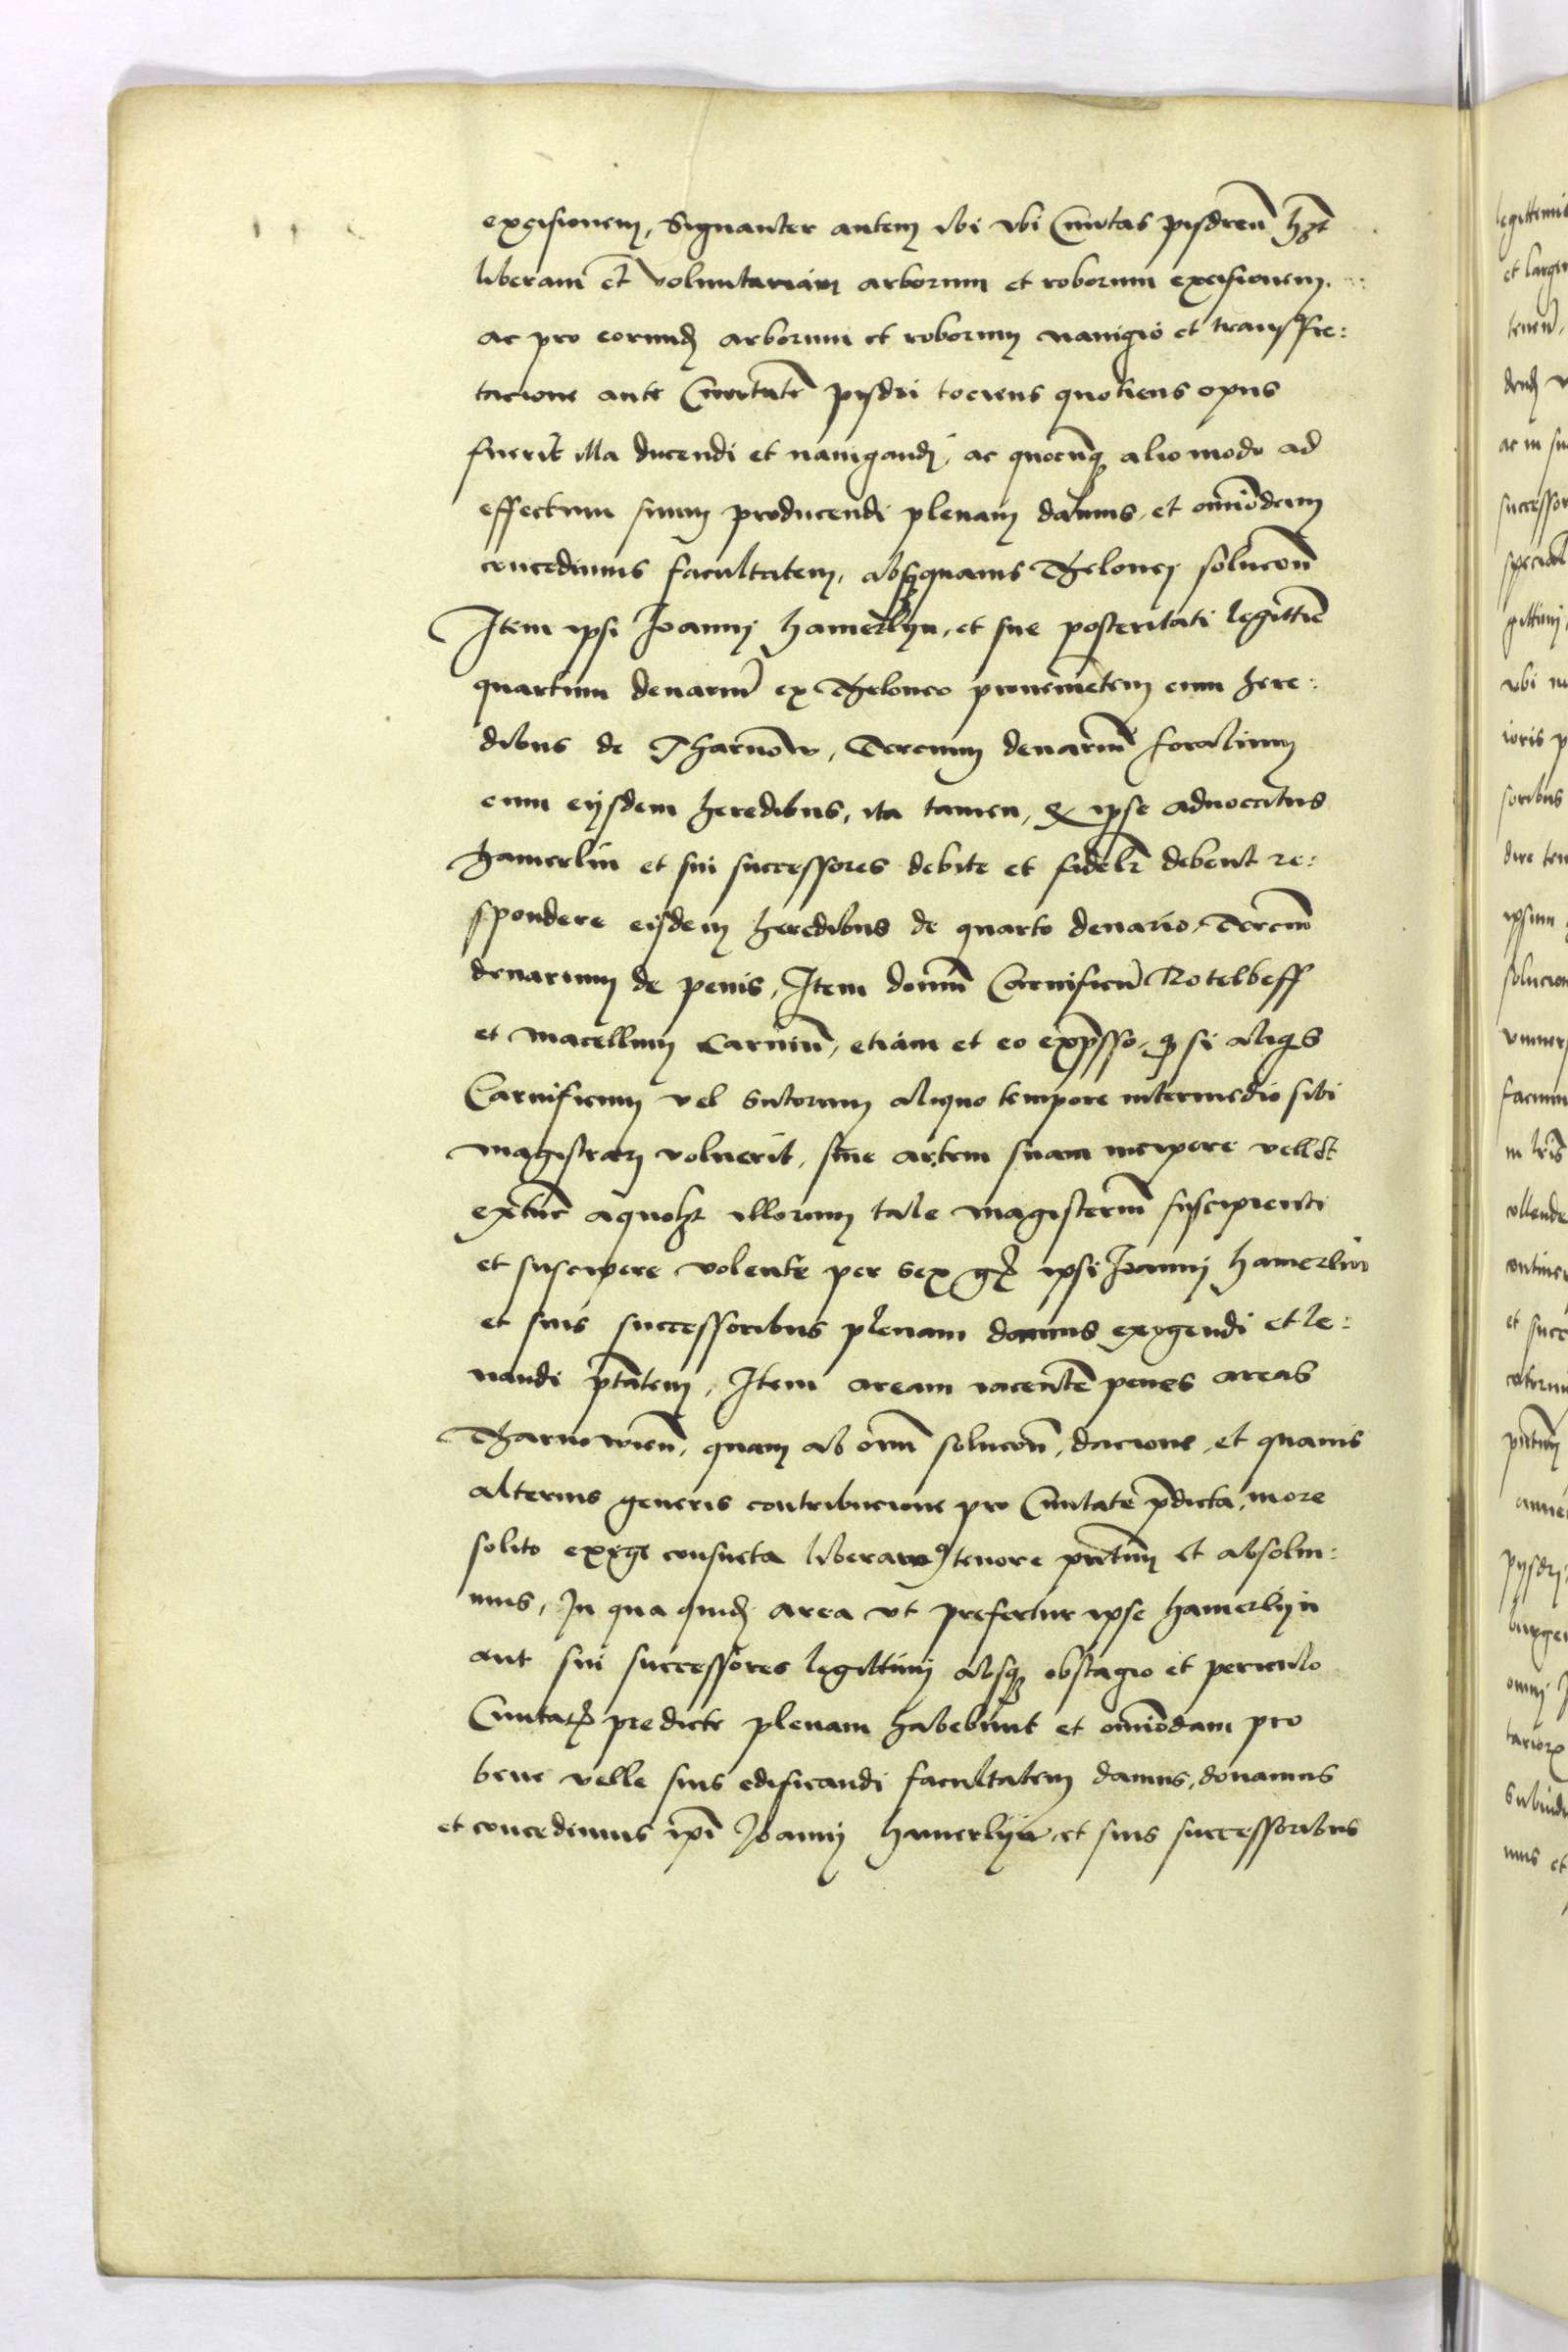 excisionem, Signanter autem ibi vbi Ciuitas pisdren̄ hꝫt
liberam et voluntariam arborum et roborum excisionem.
ac pro eorundꝫ arborum et roborum nauigio et transffre:
tacione ante Ciuitatē pysdri tociens quotiens opus
fuerit illa ducendi et nauigandj, ac quocūqꝫ alio modo ad
effectum suum producendi plenam damus, et oīmodam
concedimus facultatem, absqꝫ quauis Theloney solucoē
Item ipsi Joannj hamerlyn, et sue posteritati legittīe
quartum denariū ex Theloneo proueniētem cum here:
dibus de Tharnow, Tercium denariū foralium
cum eysdem heredibus, ita tamen, qꝫ ipse aduocatus
hamerlin et sui successores debite et fidelr̄ debent re:
spondere eisdem heredibus de quarto denario, Terciū
denarium de penis, Item domū Carnificū Kotelbeff
et macellum carniū, etiam et eo exp̄sso, qꝫ si aliqis
Carnificum vel sutorum aliquo tempore intermedio sibi
magistrarj voluerit, siue artem suam incipere vellet
extūc a quolꝫt illorum tale magisteriū suscipienti
et suscipere volente per sex gꝝ ipsi Joannj hamerlin
et suis successoribus plenam damus exigendi et le:
uandi p̄tatem, Item aream iacentē penes areas
Tharnowien̄, quam ab om̄i solucoē, dacione, et quauis
alterius generis contribucione pro Ciuitate p̄dicta, more
solito exigi consueta liberam⁹ tenore pn̄tium et absolui:
mus, In qua quidꝫ area vt prefertur ipse hamerlyn
aut sui successores legittimj absqꝫ obstagio et periculo
Ciuitatꝭ predicte plenam habebunt et oīmodam pro
bene velle suis edificandi facultatem damus, donamus
et concedimus ip̄i Joannj hamerlyn, et suis successoribus